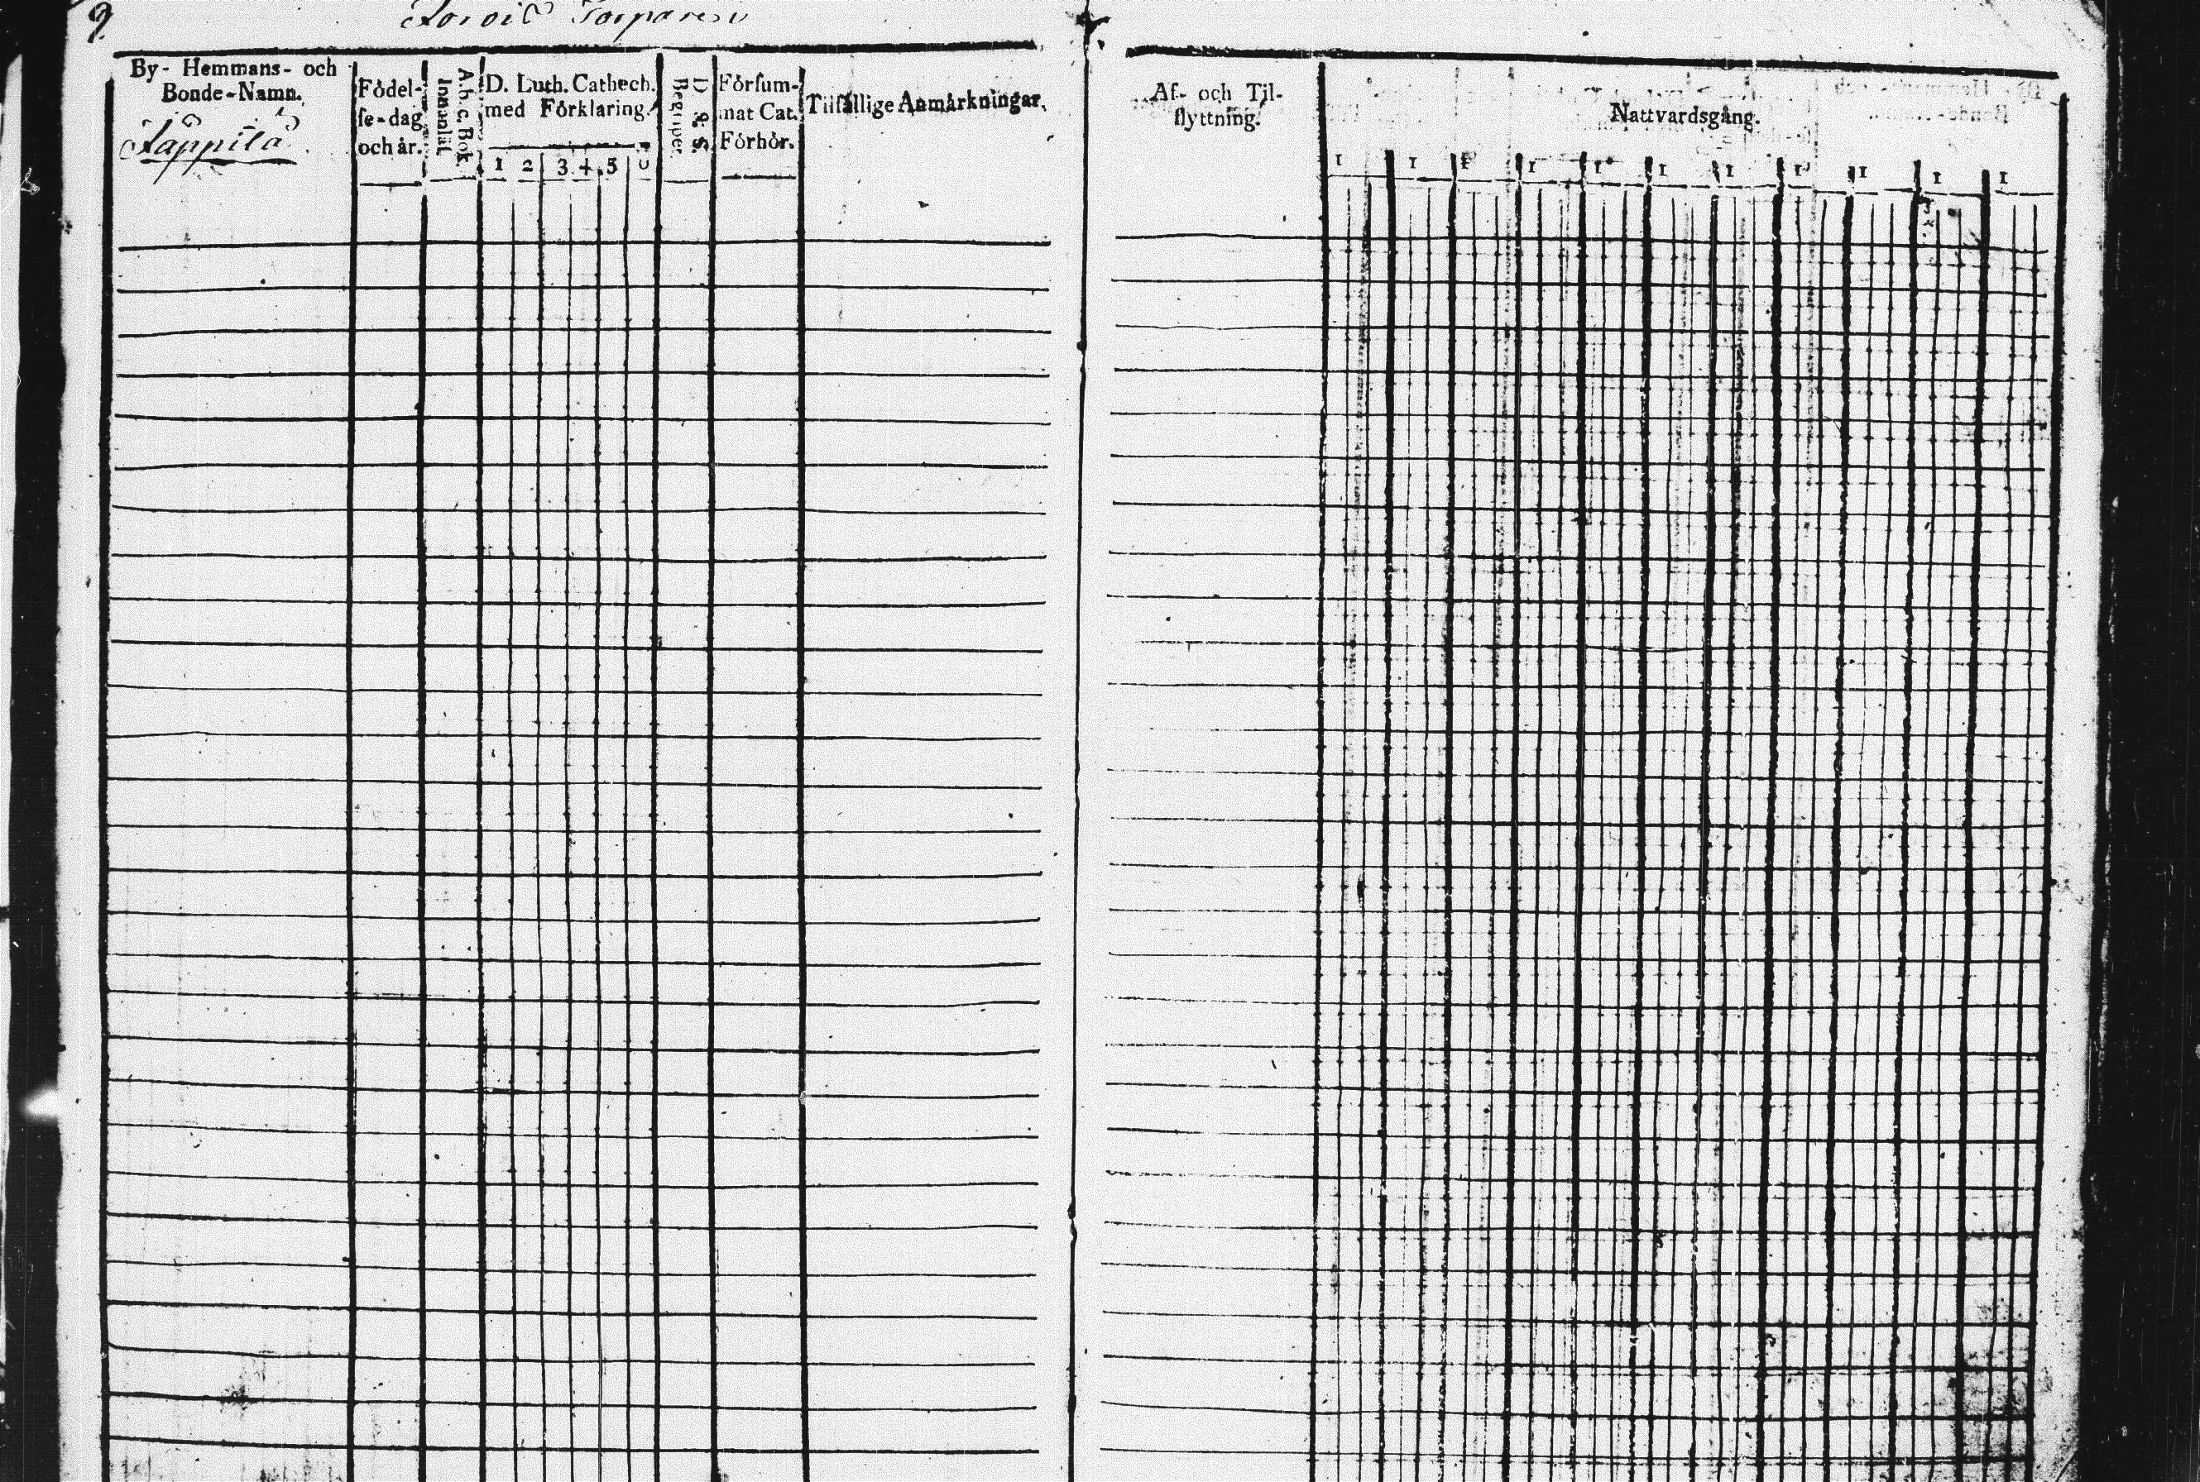 9.
Torpare
By- Hemmans- och
Bonde-Namn.
Födel-
se-dag
och år.
A. b. c. Bok.
Innanläs.
D. Luth. Cathech.
med Förklaring.
1 2 3 4 5
D. S.
Begriper.
Försum-
mat Cat.
Förhör.
Tilfällige Anmärkningar.
Af- och Til-
flyttning.
Nattvardsgång.
1 1 1 1 1 1 1 1 1 1 1